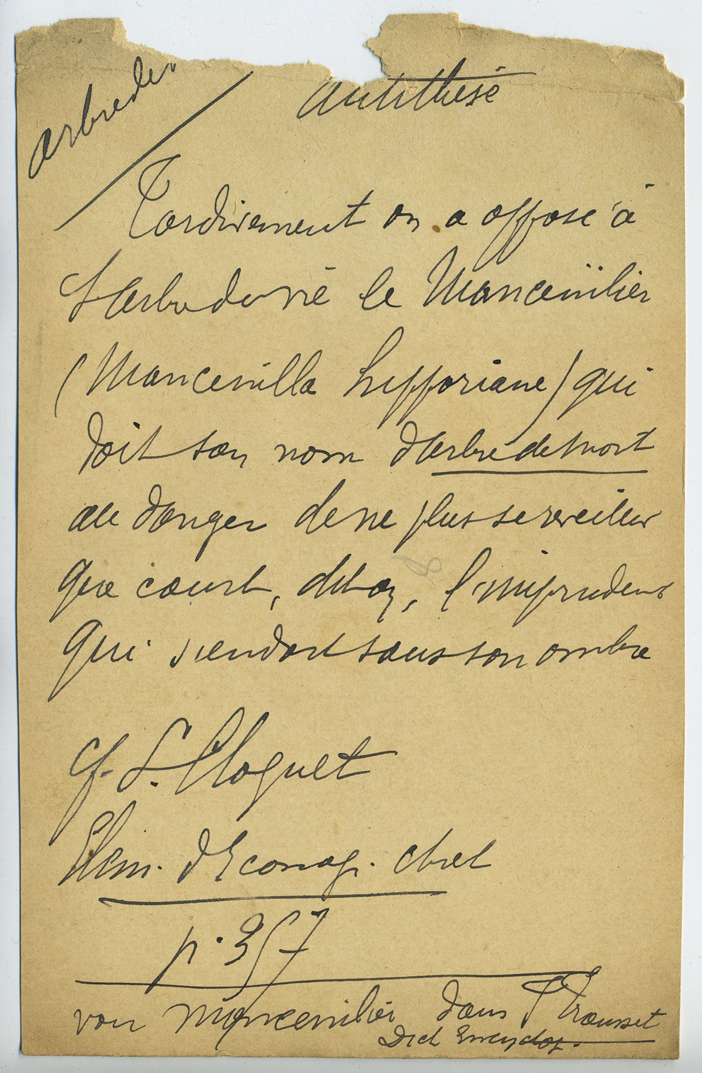 arbre de
Antithèse
Tardivement on a opposé à
l'arbre de vie le Mancenilier
(Mancenilla hippomane) qui
doit son nom d'arbre de mort
au danger de ne plus se reveiller
que court, dit on, l'imprudent
qui s'endort sous son ombre
cf. L. Cloquet
Elem. d'Iconog. chret
p. 357
voir Mancenilier dans Trousset
Dict Encyclop.